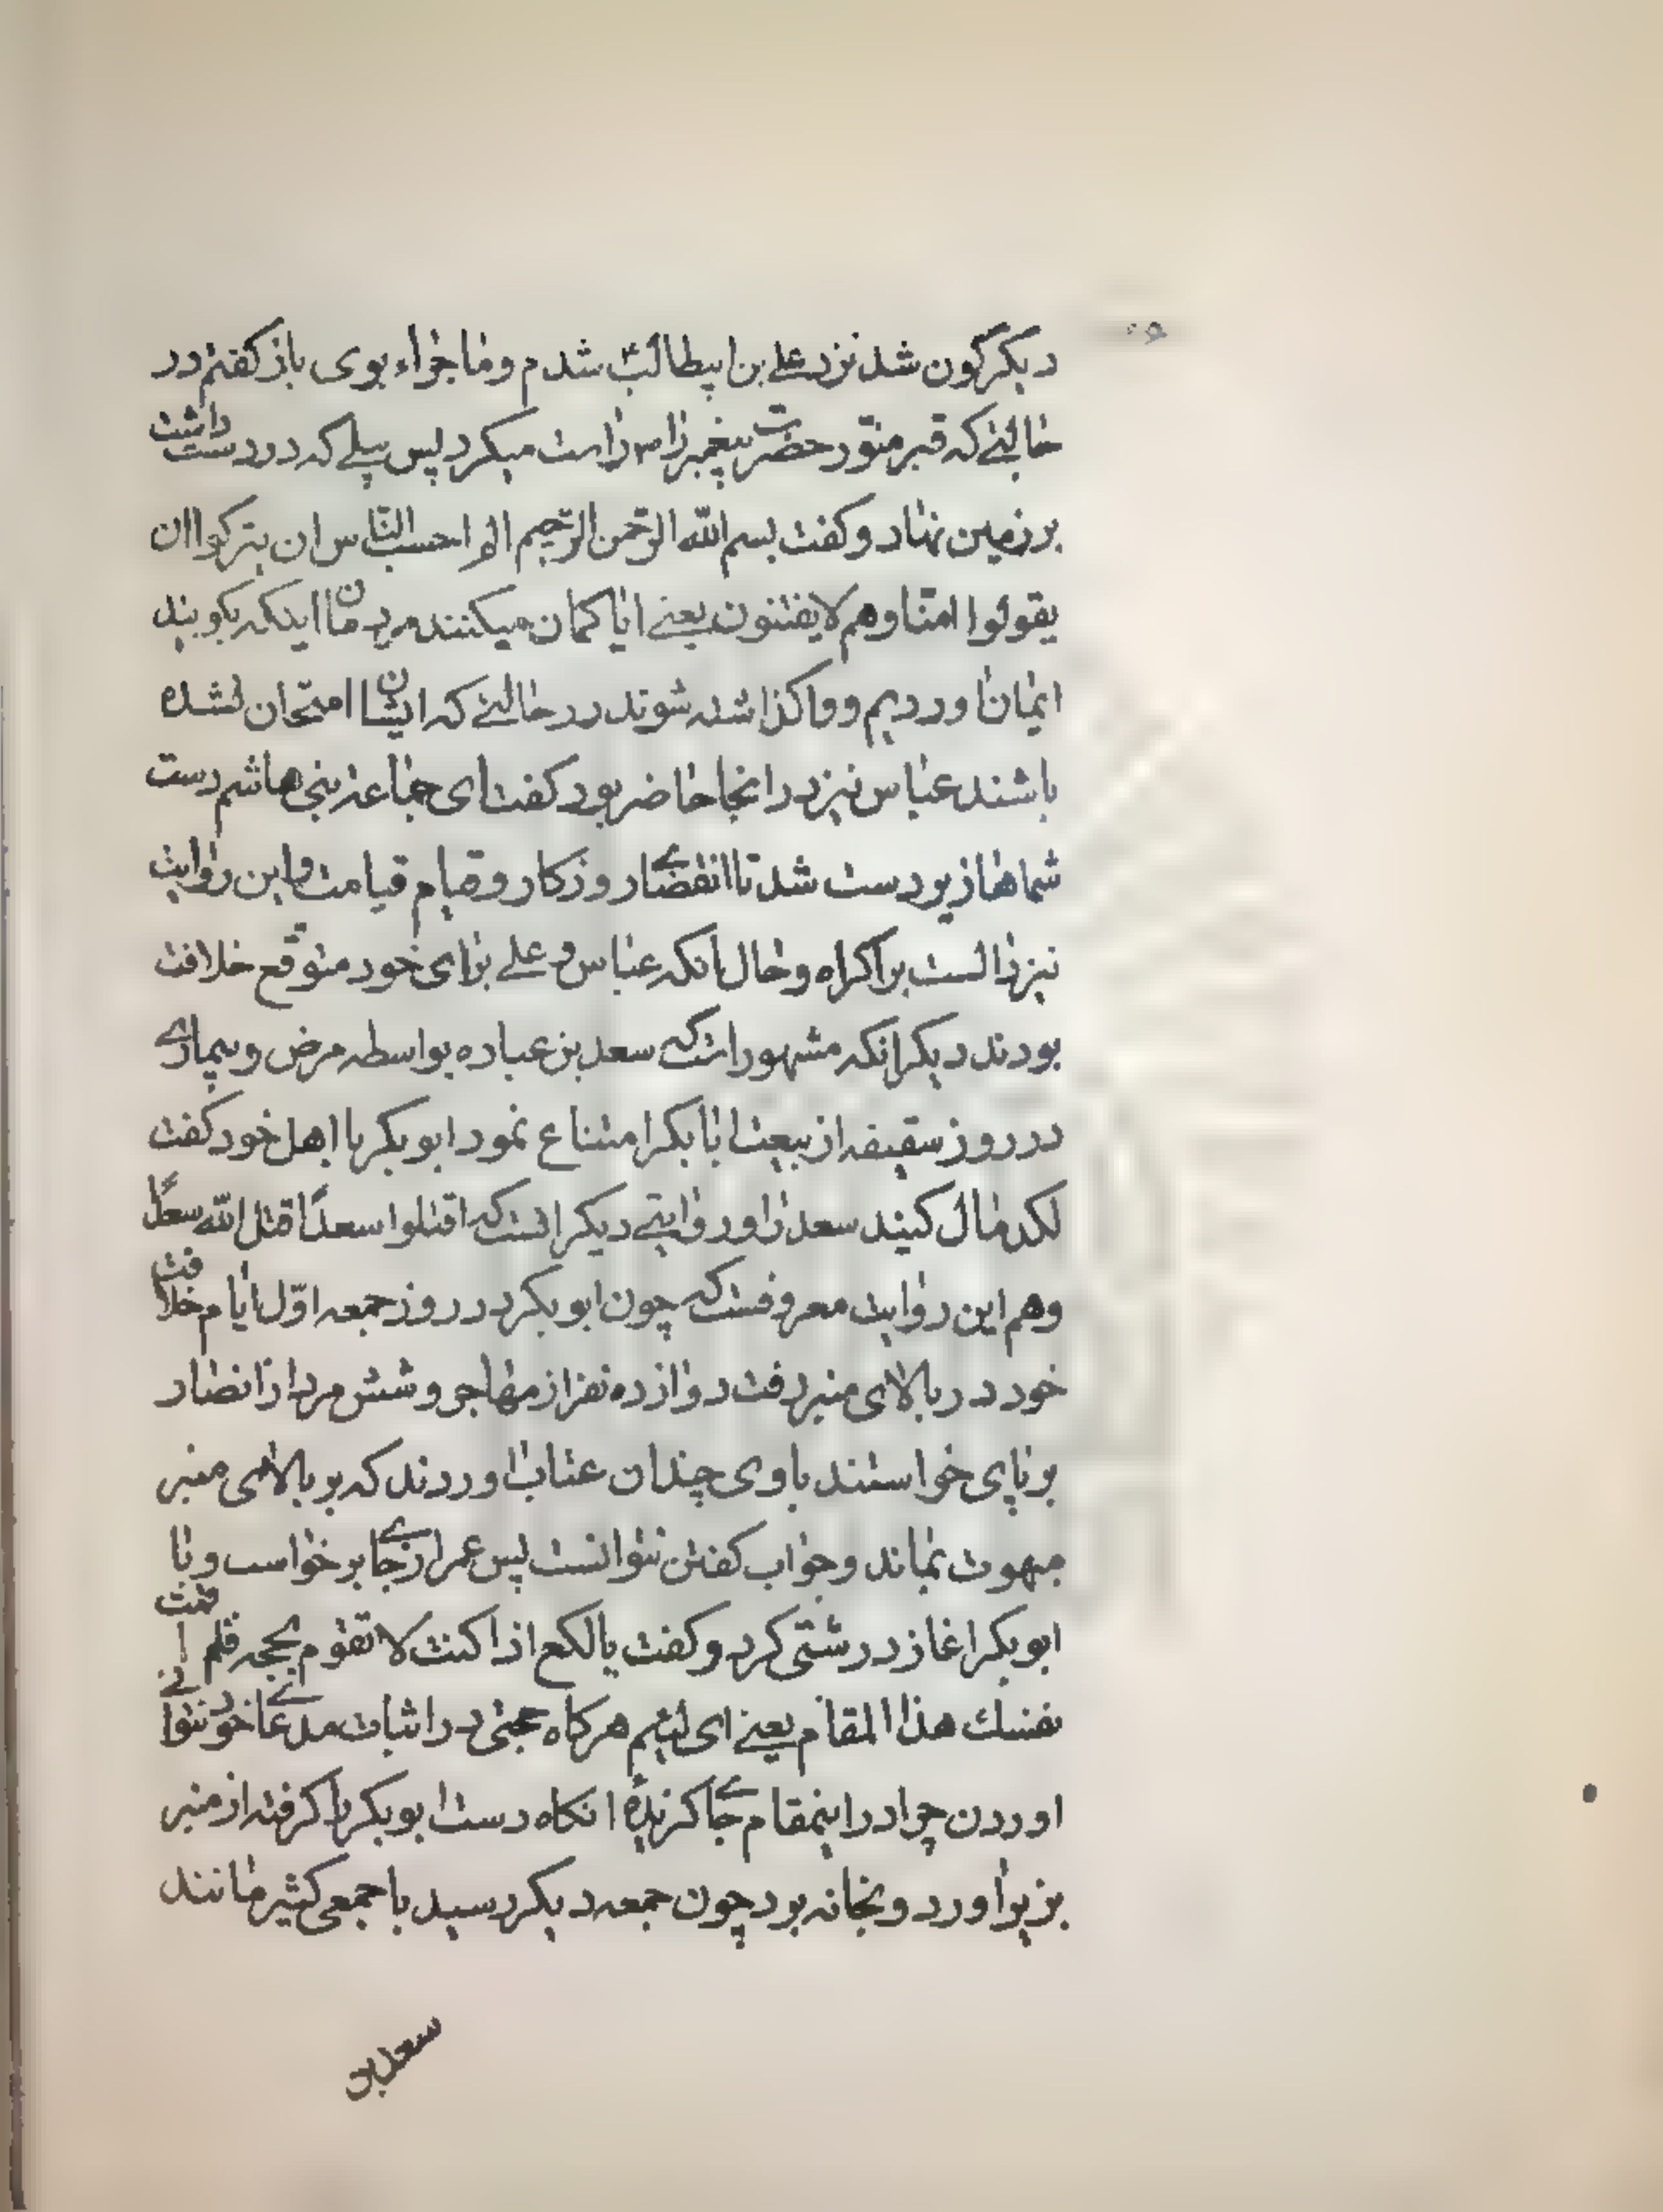 دیکرکون شد نزد علی بن ابیطالب شدم و ماجراء بوی باز کفتم در
حالتی که قبر منور حضرت پیغمبر را راست میکرد پس بیلی که در دست داشت
بر زمین نهاد و کفت بسم الله الرحمن الرحیم الم احسب الناس ان یترکوا ان
یقولوا امنا و هم لا یفتنون یعنی ایا کمان میکنند مردمان اینکه بکویند
ایمان اوردیم و واکذاشته شوند در حالتی که ایشان امتحان نشده
باشند عباس نیز در انجا حاضر بود کفت ای جماعة بنی هاشم دست
شماها زیر دست شد تا انقضای روزکار و قیام قیامت و این روایت
نیز دالست بر اکراه و حال انکه عباس و علی برای خود متوقع خلافت
بودند دیکر انکه مشهور است که سعد بن عباده بواسطه مرض و بیماری
در روز سقیفه از بیعت ابا بکر امتناع نمود ابو بکر با اهل خود کفت
لکد مال کنید سعد را و روایتی دیکر انست که اقتلوا سعدًا قتل الله سعدًا
و هم این روایت معروفست که چون ابو بکر در روز جمعه اوّل ایام خلافت
خود در بالای منبر رفت دوازده نفر از مهاجر و شش مرد از انصار
بر پای خواستند با وی چندان عتاب اوردند که بر بالای منبر
مبهوت بماند و جواب کفتن نتوانست پس عمر از جای بر خواست و با
ابو بکر اغاز درشتی کرد و کفت یا لکع اذا کنت لا تقوم بحجة فلم اقمت
نفسك هذا المقام یعنی ای لئیم هرکاه حجتی در اثبات مدعای خود نتوانی
اوردن چرا در اینمقام جای کزیدهٔ انکاه دست ابو بکر را کرفته از منبر
بزیر اورد و بخانه برد چون جمعه دیکر رسید با جمعی کثیر مانند
سعد بن